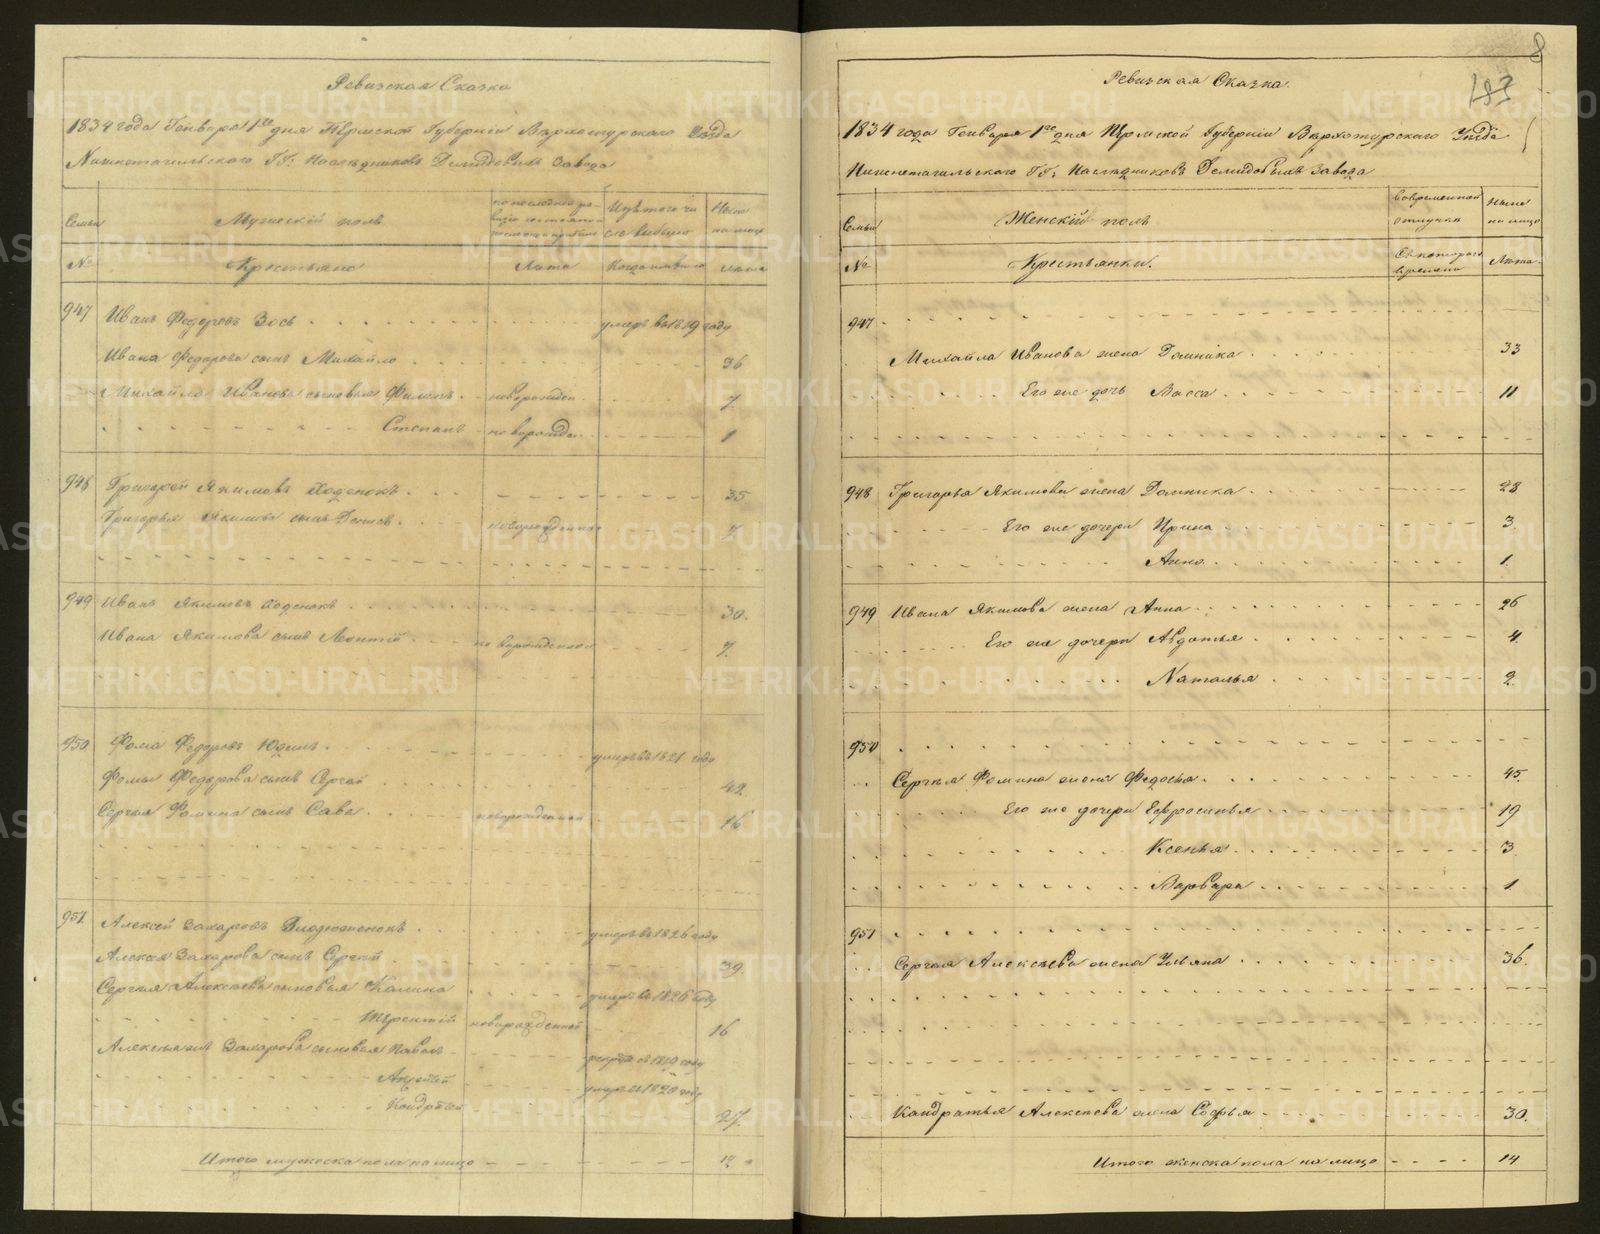 Ревизская Сказка
1834 года Генваря 1го дня Пермской Губернiи Верхотурскаго Уезда
Нижнетагильскаго ГГ. Наследниковъ Демидовыхъ Завода
Семьи
Мужескiй полъ
Изъ того числа выбыло
Ныне на лицо
№
Крестьяне
Лета
Когда именно
Лета
947 Иванъ Федоровъ Зось умеръ въ 1819 году
Ивана Федорова сынъ Михайло 36
Михайла Иванова сыновья Филипъ новорожден. 7
Степанъ новорожден. 1
948 Григорей Якимовъ Ходенокъ 35
Григорья Якимова сынъ Денисъ новорожденной 7
949 Иванъ Якимовъ Ходенокъ 30.
Ивана Якимова сынъ Леонтiй новорожденной 7.
950 Фома Федоровъ Юдинъ умеръ въ 1821 году
Фомы Федорова сынъ Сергей 42
Сергея Фомина сынъ Сава новорожденной 16
951 Алексей Захаровъ умеръ въ 1826 году
Алексея Захарова сынъ Сергей 39.
Сергея Алексеева сыновья Калина умеръ въ 1826 году
Терентiй новорожденной 16
Алексея Захарова сыновья Павелъ году
умеръ въ 1820 году
Кондратей 27.
Итого мужеска пола на лицо 12
8
183
Ревизская Сказка
1834 года Генваря 1го дня Пермской Губернiи Верхотурскаго Уезда
Нижнетагильскаго ГГ. Наследниковъ Демидовыхъ Завода
Семьи
Женскiй полъ
Во временной отлучке
Ныне на лицо
№
Крестьянки.
Съ котораго времени
Лета
947
Михайла Иванова жена Домника 33
Его же дочь Васса 11
948 Григорья Якимова жена Домника 28
Его же дочери Ирина 3
Анна 1
949 Ивана Якимова жена Анна 26
Его же дочери Авдотья 4
Наталья 2
950
Сергея Фомина жена Федосья 45.
Его же дочери Евфросинья 19
Ксенья 3
Варвара 1
951
Сергея Алексеева жена Ульяна 36.
Кондратья Алексеева жена Софья 30.
Итого женска пола на лицо 14
METRIKI.GASO-URAL.RU